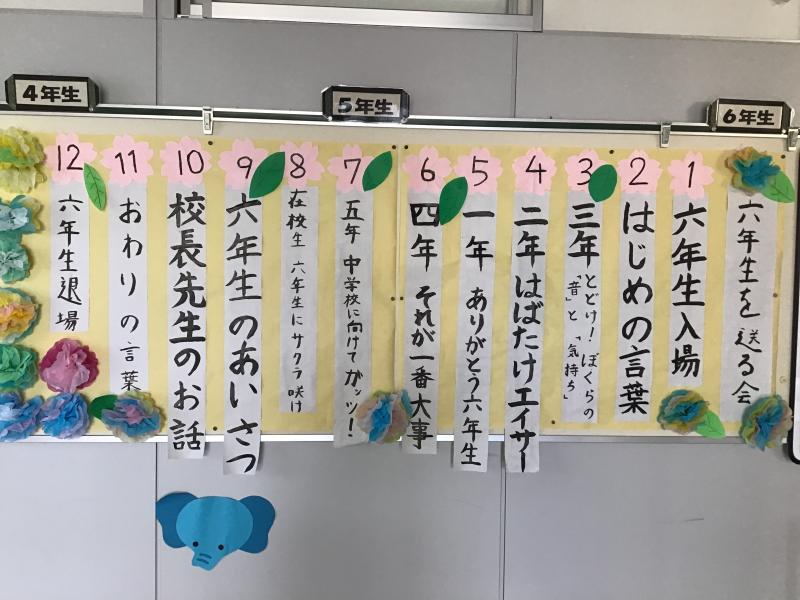 4年生
5年生
6年生
六年生を送る会
1 六年生入場
2 はじめの言葉
3 三年 とどけ!ぼくらの
「音」と「気持ち」
4 二年 はばたけエイサー
5 一年 ありがとう六年生
6 四年 それが一番大事
7 五年 中学校に向けてガッツ!
8 在校生 六年生にサクラ咲け
9 六年生のあいさつ
10 校長先生のお話
11 おわりの言葉
12 六年生退場